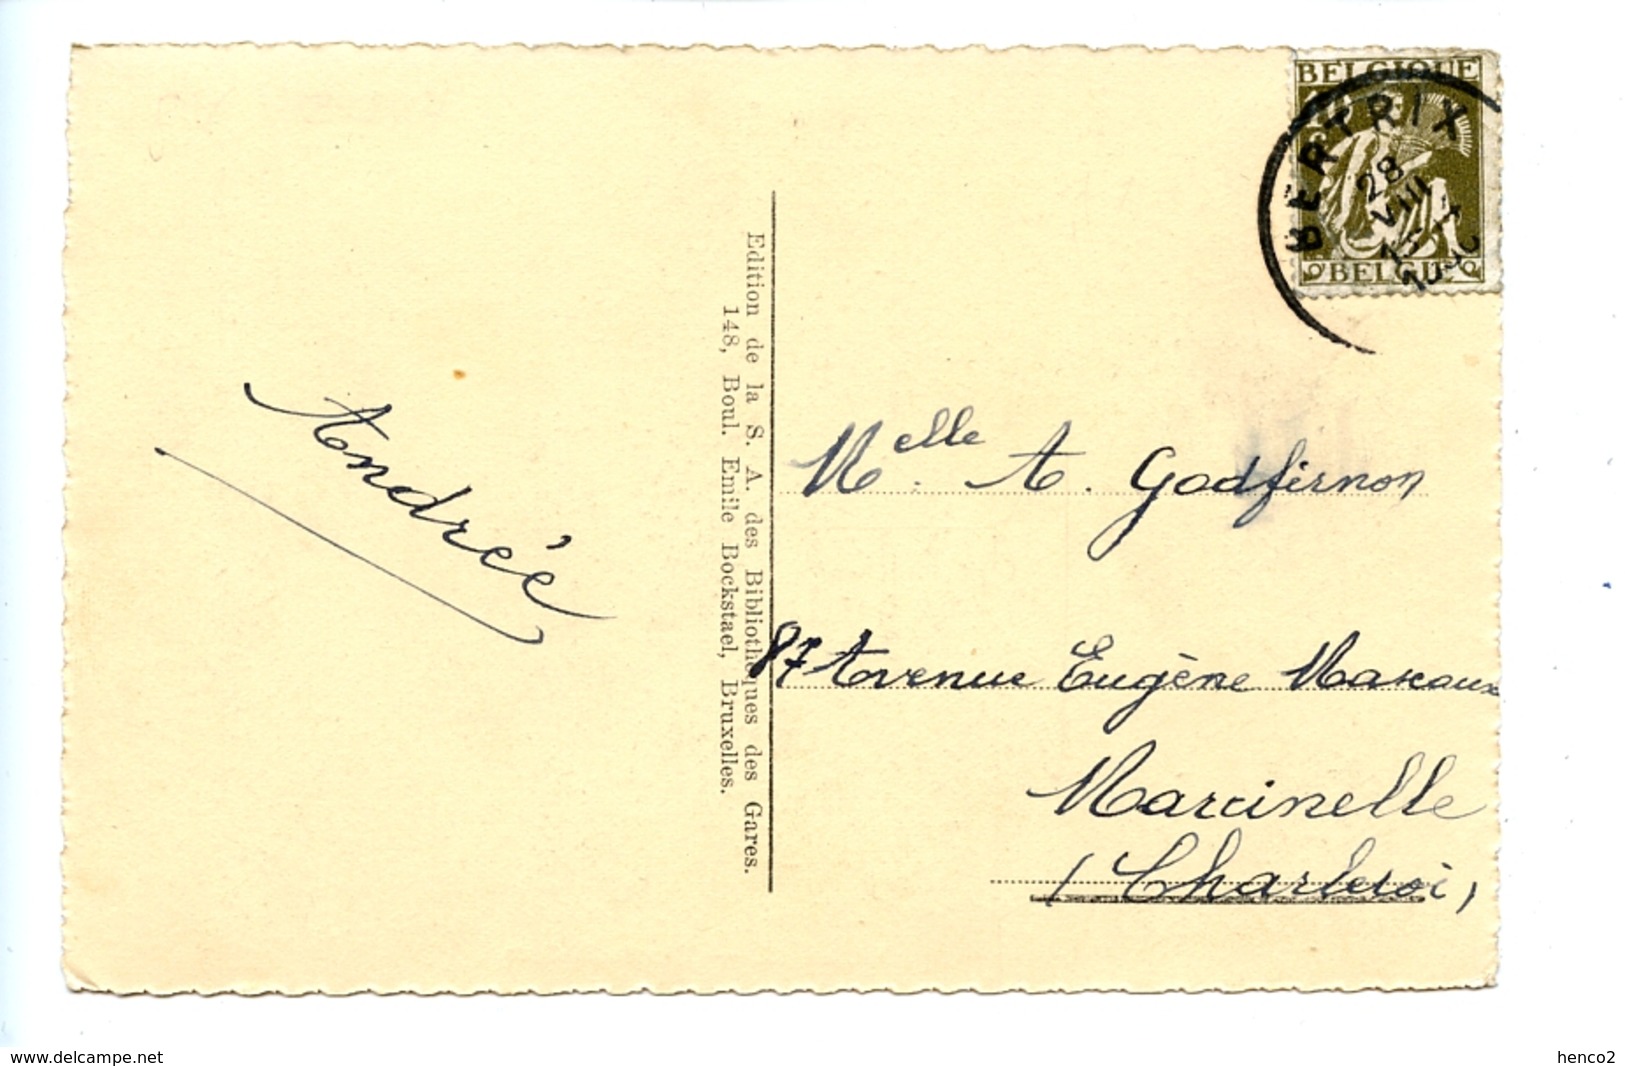 BELGIQUE
BERTRIX
28
VIII
15
BELGIË
Edition de la S. A. des Bibliothèques des Gares.
148, Boul. Emile Bockstael, Bruxelles.
Andrée
Melle. A. Godfirnon
87 Avenue Eugène Mascaux
Marcinelle
(Charleroi)
www.delcampe.net
henco2